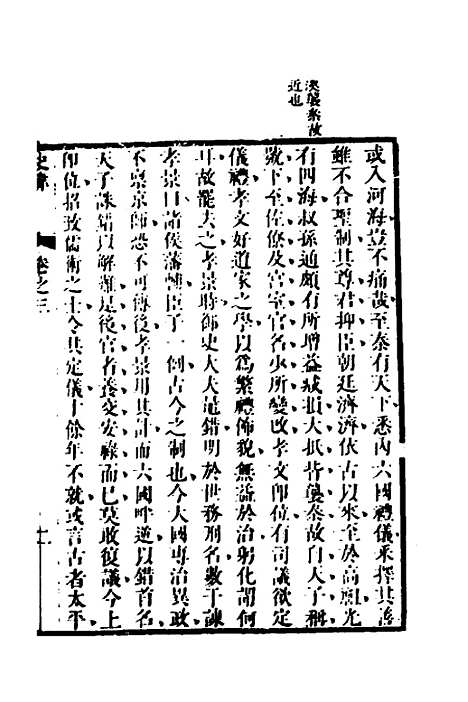 漢襲秦故
近也
或入河海豈不痛哉至秦有天下悉內六國禮儀采擇其善
雖不合聖制其尊君抑臣朝廷濟濟依古以來至於高祖光
有四海叔孫通頗有所增益減損大抵皆襲秦故自天子稱
號下至佐僚及宮室官名少所變改孝文即位有司議欲定
儀禮孝文好道家之學以爲繁禮飾貌無益於治躬化謂何
耳故罷去之孝景時御史大夫晁錯明於世務刑名數干諫
孝景曰諸侯藩輔臣子一例古今之制也今大國專治異政
不稟京師恐不可傳後孝景用其計而六國畔逆以錯首名
天子誅錯以解難是後官者養交安祿而已莫敢復議今上
即位招致儒術之士令共定儀十餘年不就或言古者太平
卷之三